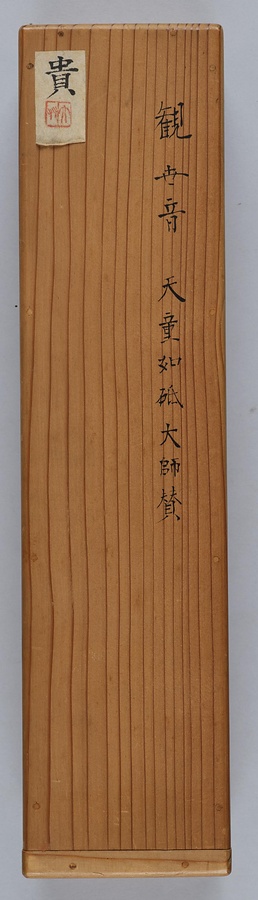 観世音 天童如砥大師賛
貴